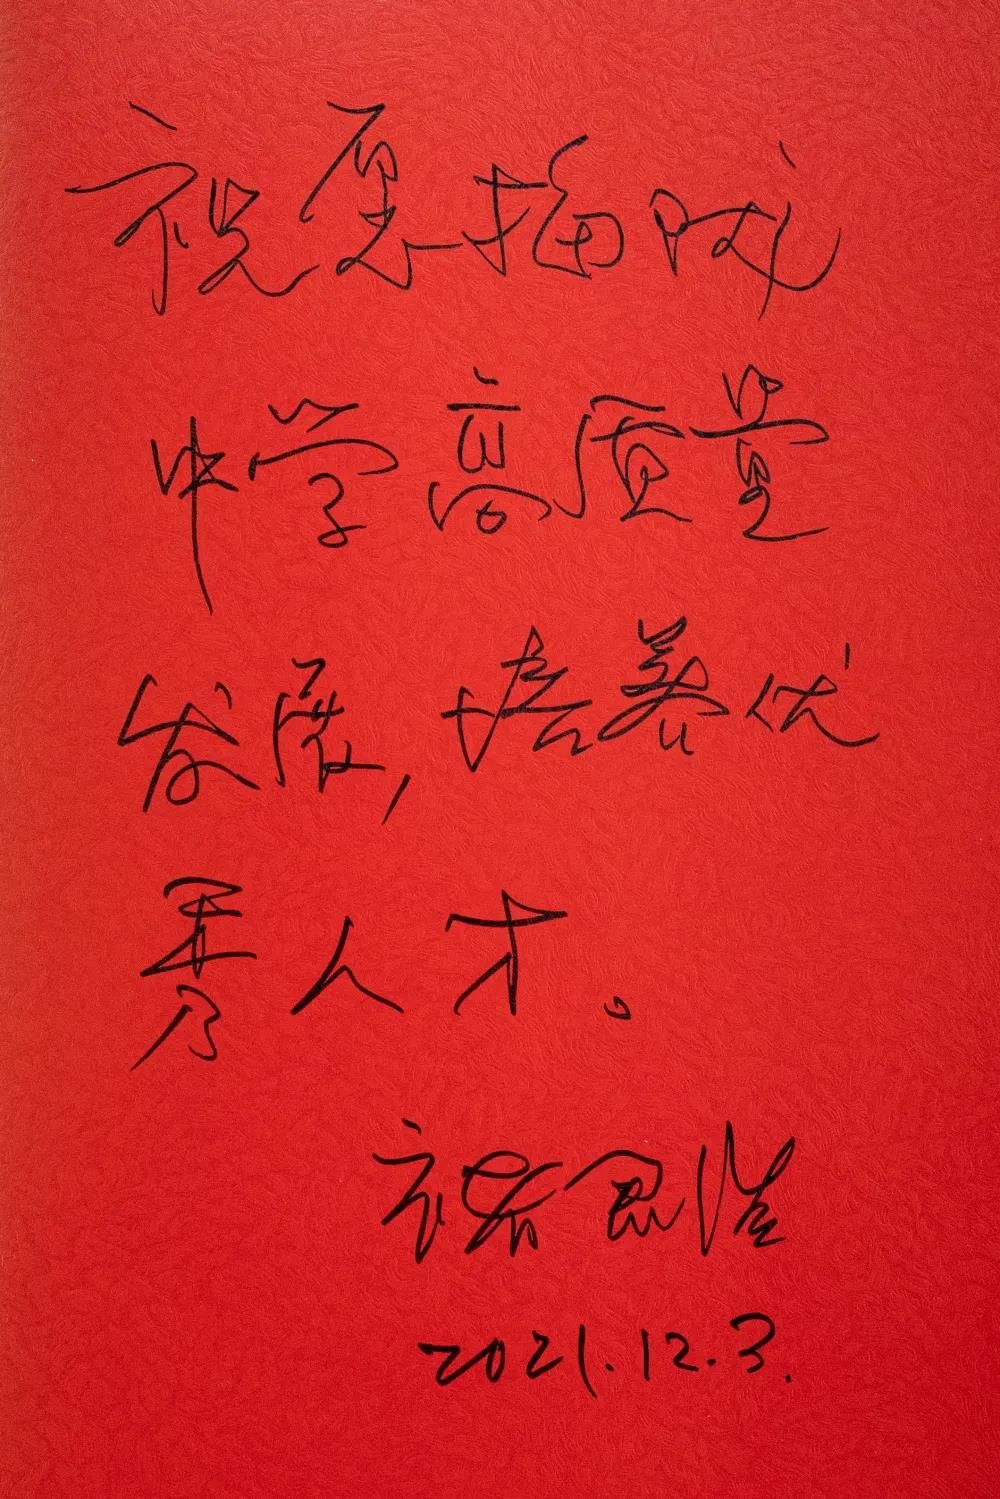 祝愿梅陇
中学高质量
发展，培养优
秀人才。
褚君浩
2021.12.3.